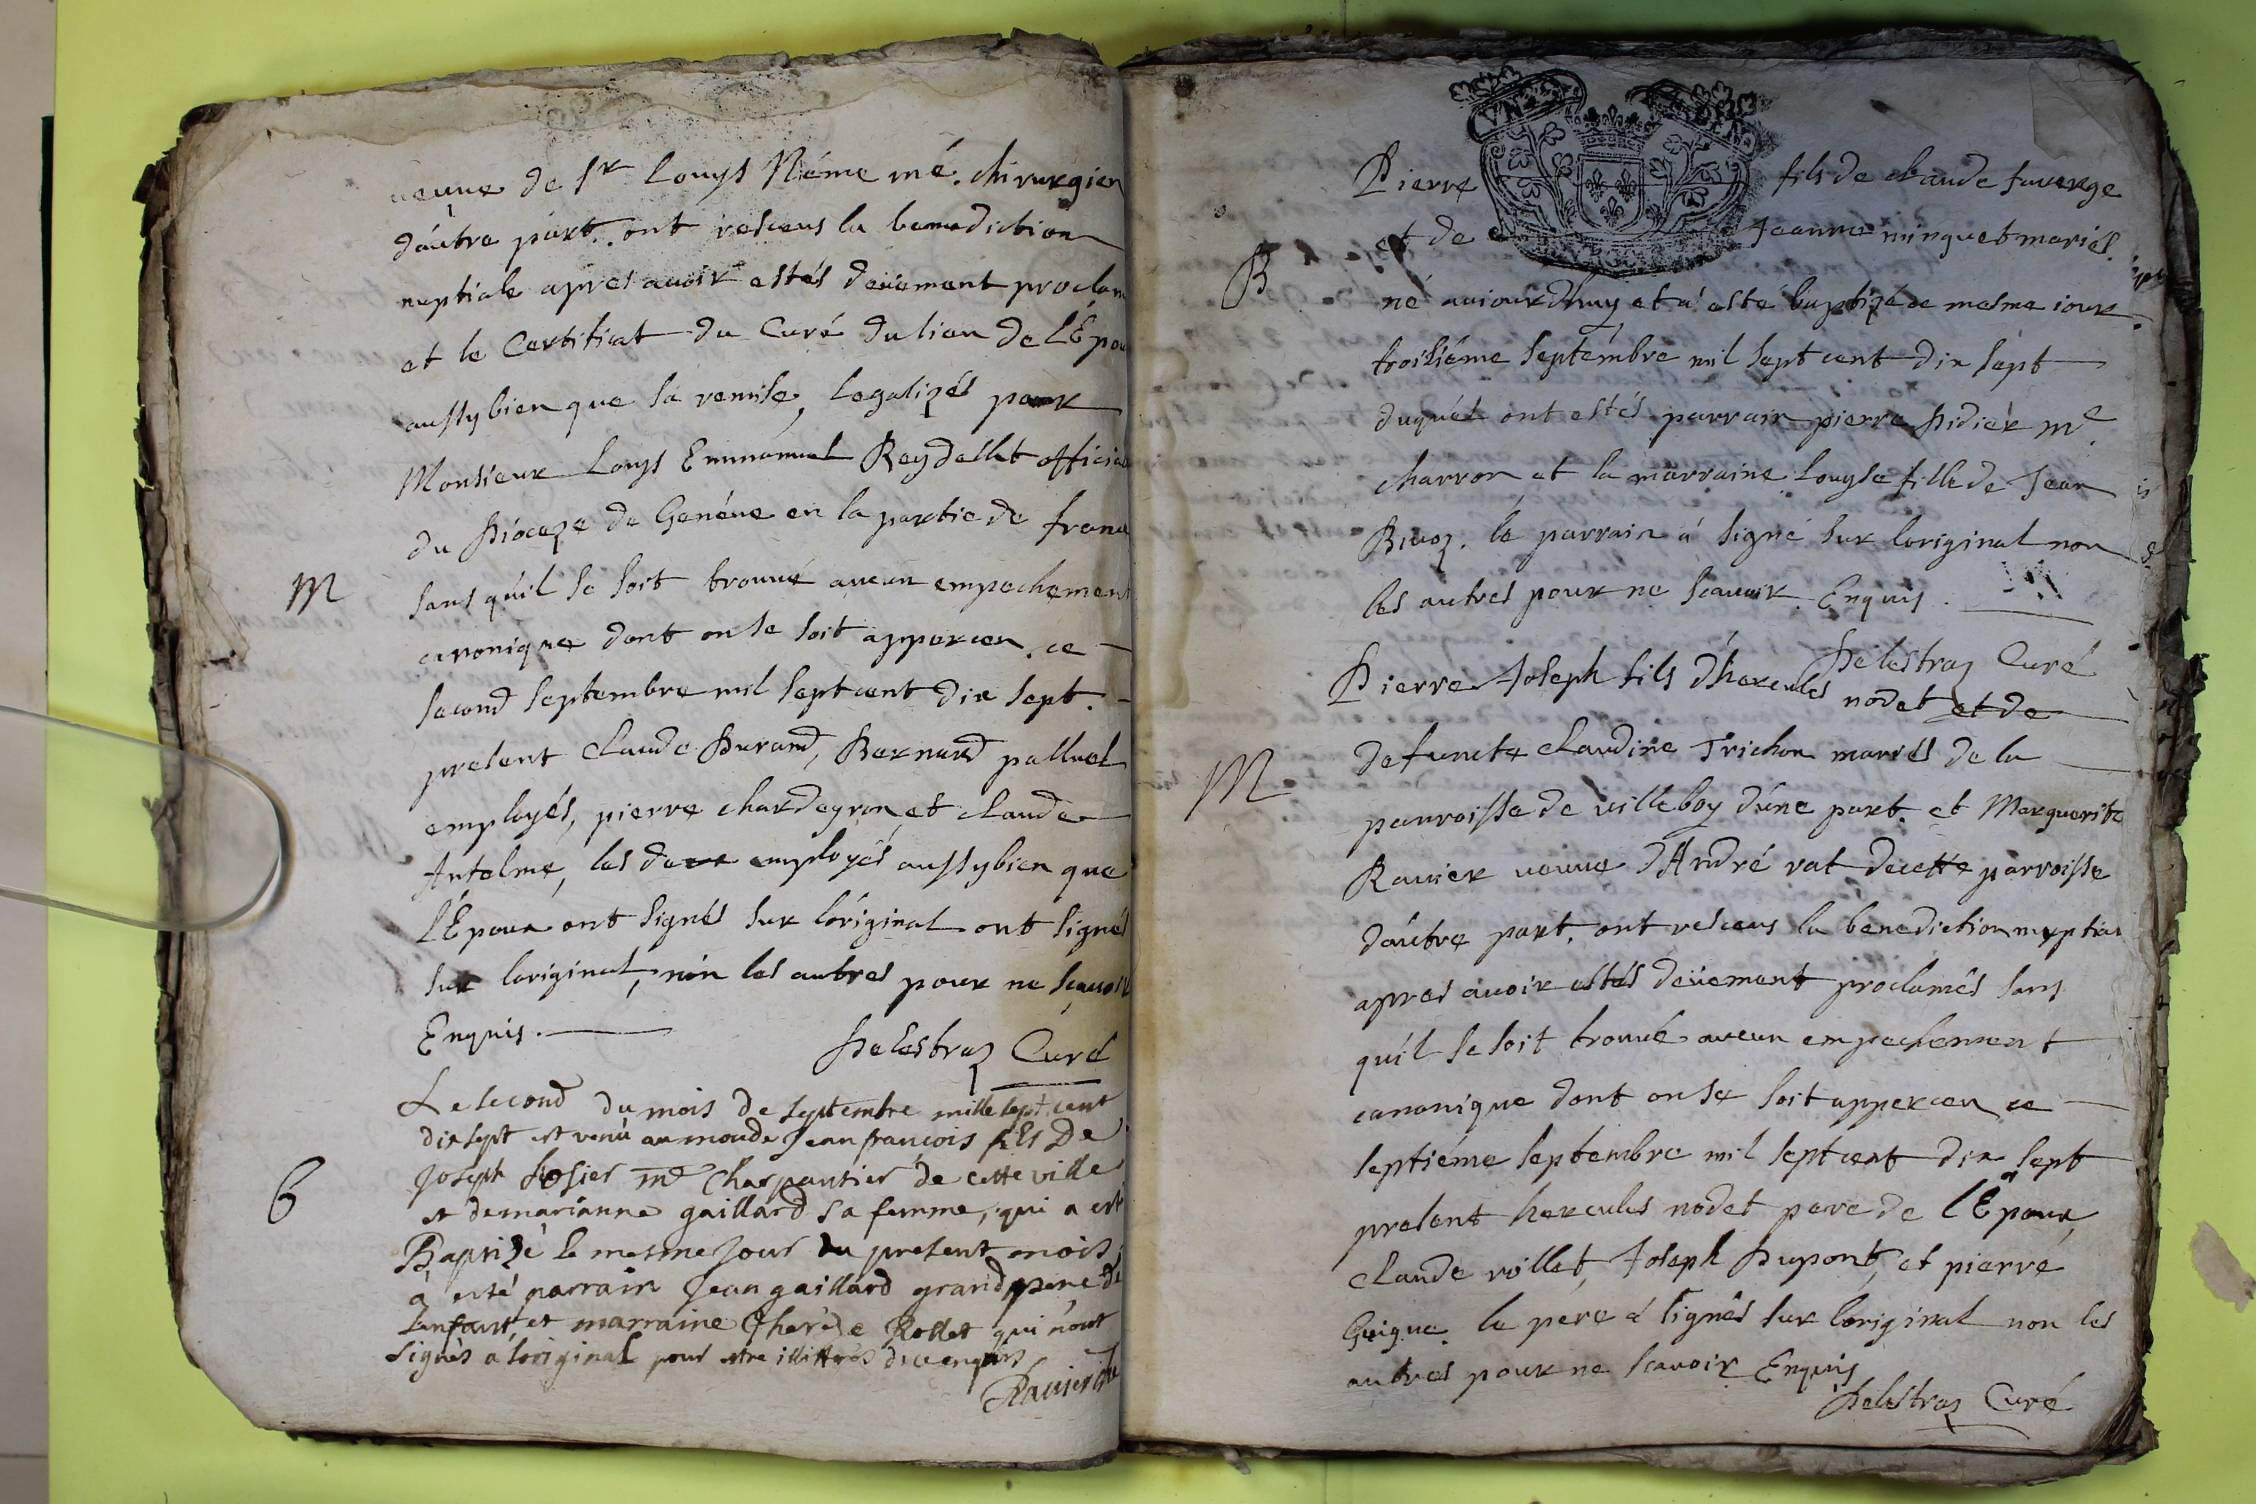 veuve de Sr Louys Néme mé. chirurgien
d'autre part. ont reseeus la benediction
nuptiale apres avoir estés deüement proclam
et le Certificat du Curé du lieu de l'Épou
aussy bien que sa remise, legalizés par
Monsieur Louys Emmanuel Reydellet officia
du Dioceze de Genéve en la partie de franc
M
sans qu'il se soit trouvé aucun empechement
canonique dont on se soit apperceu. ce
second septembre mil sept cent dix sept.
present claude Durand, Bernard palluel
employés, pierre chardeyron, et claude
Antelme, les deux employés aussy bien que
l'Époux ont signés sur l'original ont signés
sur l'original, non les autres pour ne scavoir
Enquis.
Delestraz Curé
Le second du mois de septembre mille sept cent
dix sept est venu au monde Jean francois fils De
Joseph me Charpantier de cette ville
B
et de marianne gaillard sa femme, qui a esté
Baptizé le mesme Jour du present mois
a esté parrain Jean gaillard grand pere de
Lenfant, et marraine Therèze Rollet qui n'ont
signés a loriginal pour estre illittrés de ce enquis
Ravier
Pierre fils de claude faverge
et de Jeanne minguet mariés.
B
né auiourdhuy et a esté baptizé ce mesme iour.
troisiéme septembre mil sept cent dix sept
duquel ont estés parrain pierre Didier me.
charron et la marraine Louyse fille de Jean
Bivoz. le parrain a signé sur loriginal non
les autres pour ne scavoir. Enquis.
Delestraz Curé
Pierre Joseph fils d'hercules nodet et de
defuncte claudine Trichon mariés de la
M
parroisse de villeboy d'une part. et Marguerite
Ravier veuve d'André rat de cette parroisse
d'autre part. ont reseeus la benediction nuptia
apres avoir estés deüement proclamés sans
qu'il se soit trouvé aucun empechement
canonique dont on se soit apperceu ce
septiéme septembre mil sept cent dix sept
present hercules nodet pere de l'Époux
claude rollet, Joseph Dupont, et pierre
Guigue. le pere a signés sur loriginal non les
autres pour ne scavoir Enquis
Delestraz Curé